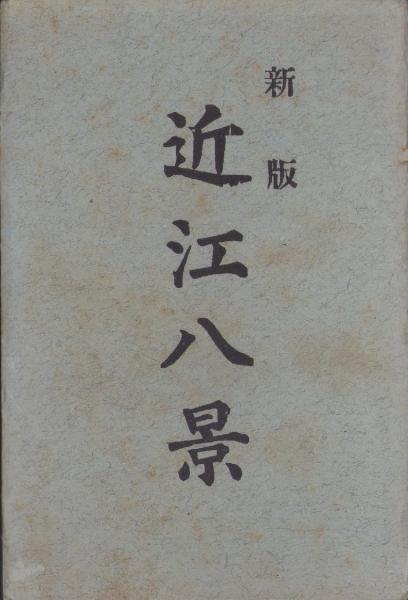 新版
近江八景